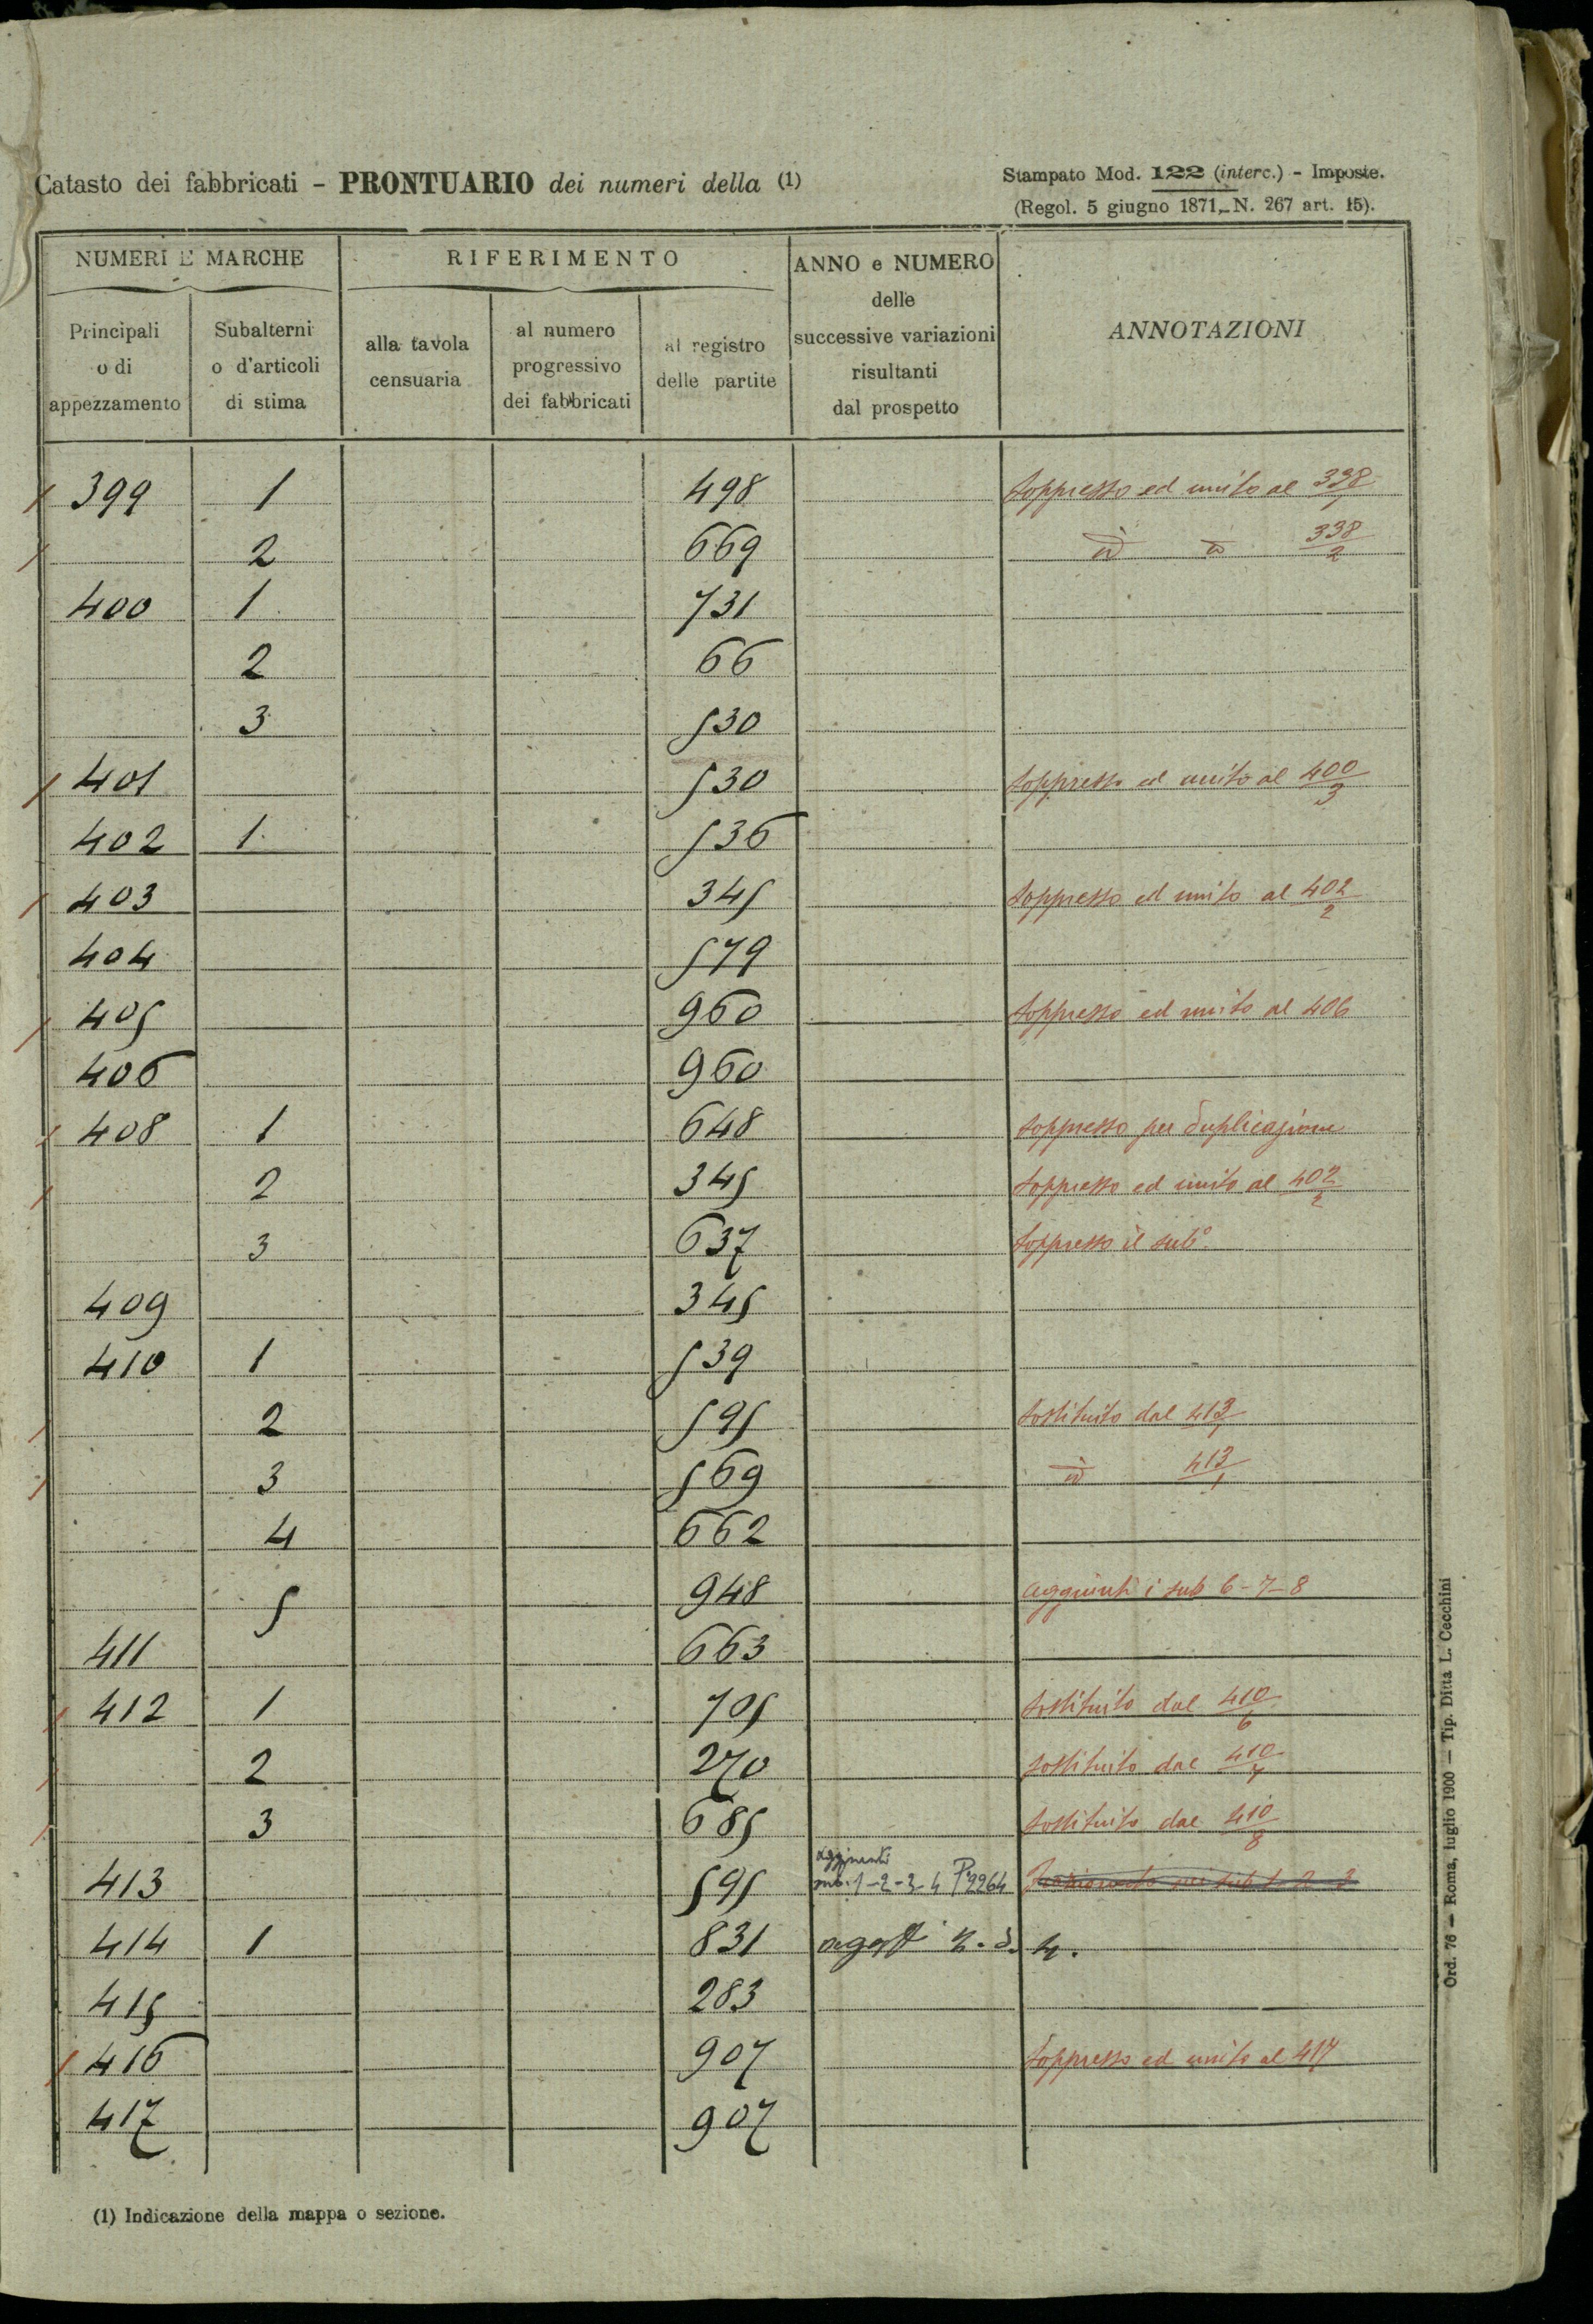 Catasto dei fabbricati - PRONTUARIO dei numeri della (1)
Stampato Mod. 122 (interc.) - Imposte.
(Regol. 5 giugno 1871, N. 267 art. 15).
NUMERI E MARCHE
RIFERIMENTO
ANNO e NUMERO
delle
successive variazioni
risultanti
dal prospetto
ANNOTAZIONI
Principali
o di
appezzamento
Subalterni
o d'articoli
di stima
alla tavola
censuaria
al numero
progressivo
dei fabbricati
al registro
delle partite
399 1 498 soppresso ed unito al 338/1
2 669 id id 338/2
400 1 731
2 66
3 530
401 530 soppresso ed unito al 400/3
402 1 536
403 345 soppresso ed unito al 402/2
404 579
405 960 soppresso ed unito al 406
406 960
408 1 648 soppresso per duplicazione
2 345 soppresso ed unito al 402/2
3 637 soppresso il sub°
409 345
410 1 539
2 595 sostituito dal 413/1
3 569 id 413/1
4 662
5 948 aggiunti i sub 6-7-8
411 663
412 1 705 sostituito dal 410/6
2 270 sostituito dal 410/7
3 685 sostituito dal 410/8
413 595 aggiunti sub. 1-2-3-4
414 1 831
415 283
416 907 soppresso ed unito al 417
417 907
(1) Indicazione della mappa o sezione.
Ord. 76 — Roma, luglio 1900 — Tip. Ditta L. Cecchini